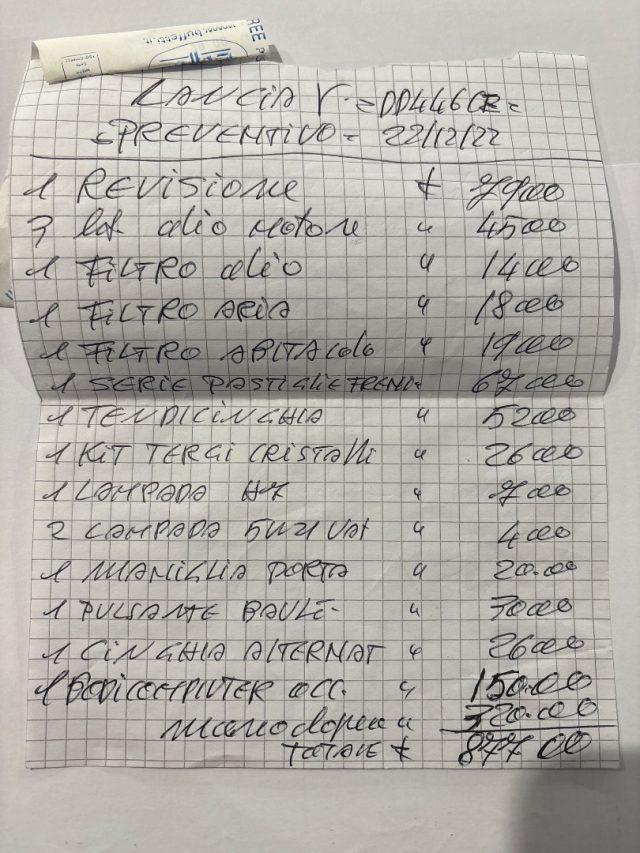 REE PS
www.buffetti.it
LANCIA Y = DD446CR =
= PREVENTIVO = 22/12/22
1 REVISIONE € 79.00
3 lat olio motore " 45.00
1 FILTRO olio " 14.00
1 FILTRO ARIA " 18.00
1 FILTRO ABITAColo " 19.00
1 SERIE PASTIGLIE FRENI " 67.00
1 TENDICINGHIA " 52.00
1 KIT TERGI CRISTAlli " 26.00
1 LAMPADA H7 " 7.00
2 LAMPADA 5W21 " 4.00
1 MANIGLIA PORTA " 20.00
1 PULSANTE BAULE " 30.00
1 CINGHIA ALTERNAT " 26.00
1 BODICOMPIUTER OCC. " 150.00
manodopera " 320.00
TOTALE € 877.00